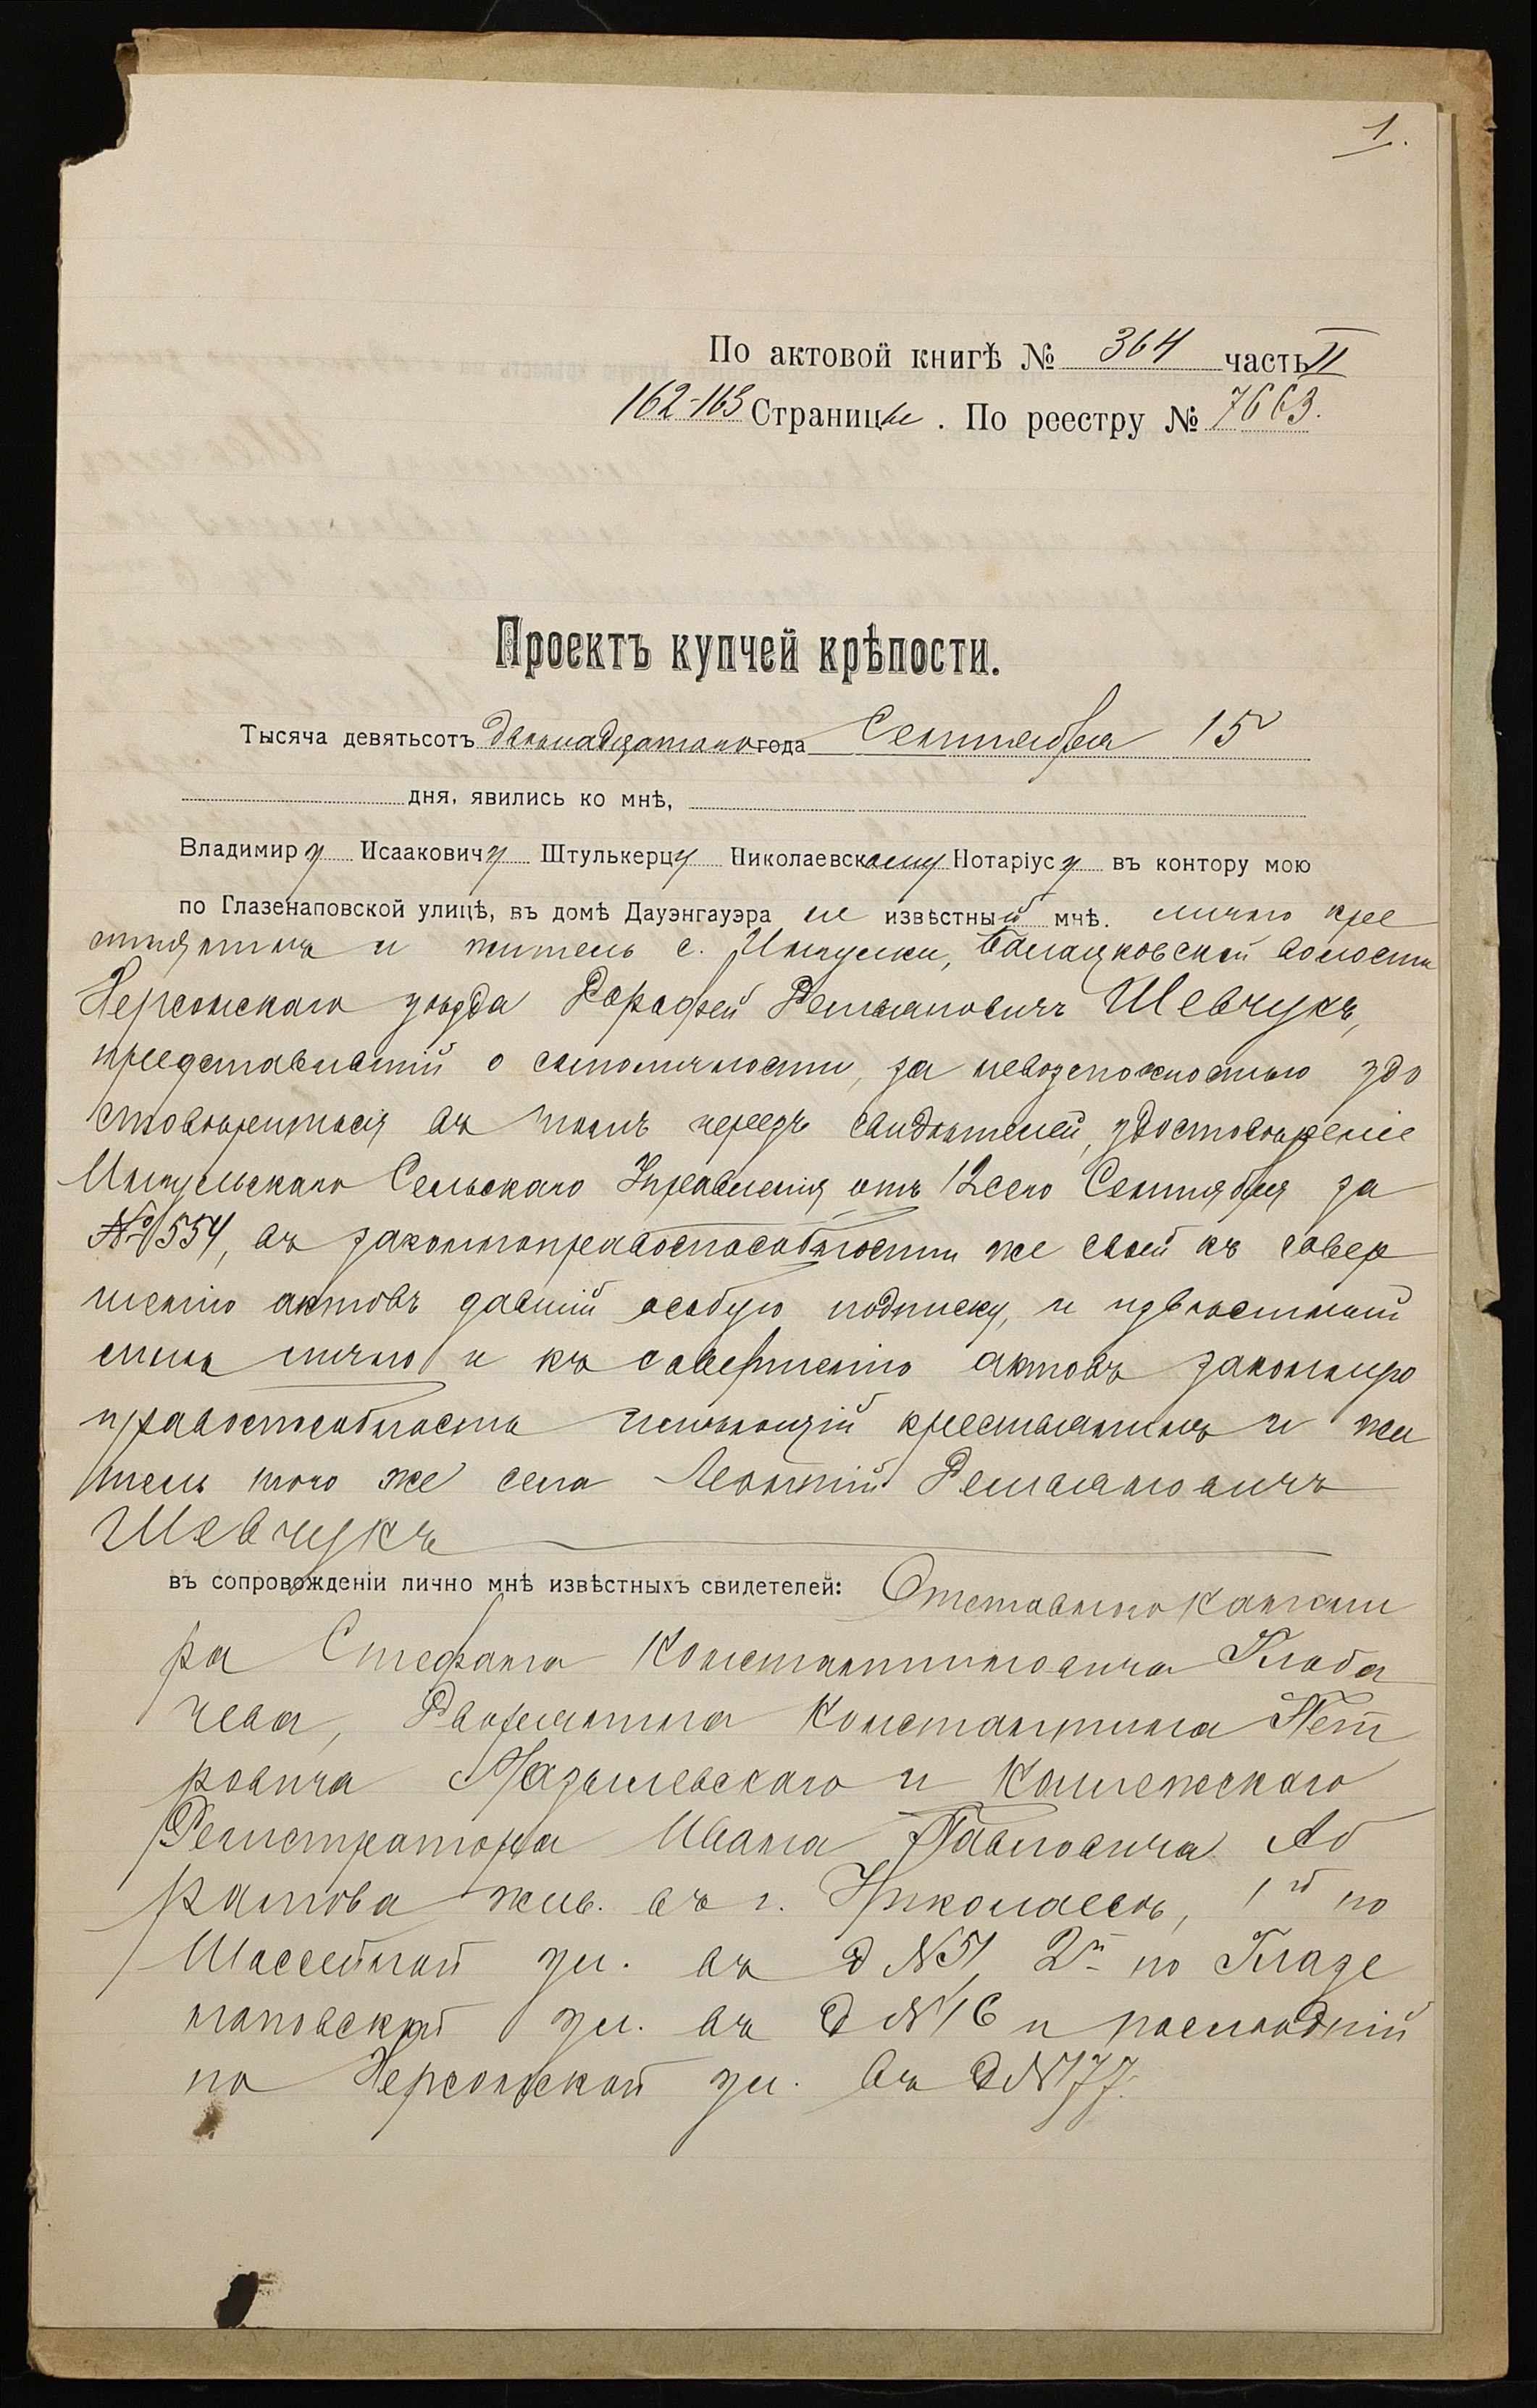 1.
По актовой книгѣ № 364 часть II
162-163 Страницы. По реестру № 7663.
Проектъ купчей крѣпости.
Тысяча девятьсотъ двѣнадцатаго года Сентября 15
дня, явились ко мнѣ,
Владимиру Исааковичу Штулькерцу Николаевскому Нотаріусу въ контору мою
по Глазенаповской улицѣ, въ домѣ Дауэнгауэра не извѣстный мнѣ. лично кре
стьянинъ и житель с. Ингулки, Балацковской волости
Херсонскаго уѣзда Дорофей Демьяновичъ Шевчукъ,
представившій о самоличности, за невозможностью удо
стовѣриться въ томъ черезъ свидѣтелей, удостовѣреніе
Ингульскаго Сельскаго Управленія отъ 12 сего Сентября за
№ 1554, въ законноправоспособности же своей къ совер
шенію актовъ давшій особую подписку, и извѣстный
мнѣ лично и къ совершенію актовъ законную
правоспособность имѣющій крестьянинъ и жи
тель того же села Леонтій Демьяновичъ
Шевчукъ
въ сопровожденіи лично мнѣ извѣстныхъ свидетелей: Отставного Канони
ра Стефана Константиновича Клоба
чева, Дворянина Константина Пет
ровича Мазышевскаго и Коллежскаго
Регистратора Ивана Павловича Аб
рамова жив. въ г. Николаевѣ, 1й по
Шоссейной ул. въ д № 51, 2й по Глазе
наповской ул. въ д № 16 и послѣдній
по Херсонской ул. въ д № 77.